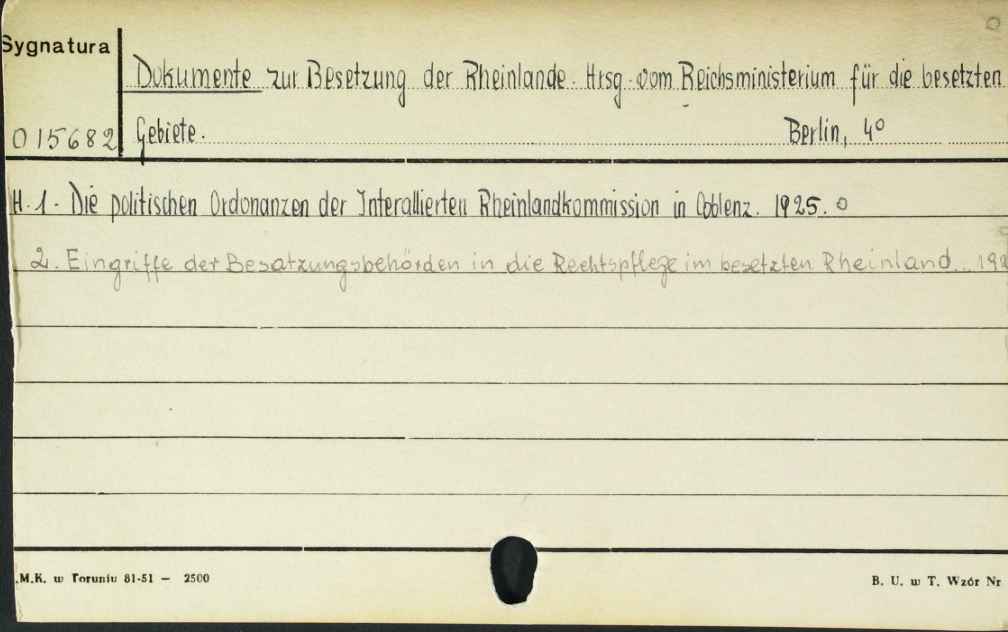 Sygnatura
Dokumente zur Besetzung der Rheinlande. Hrsg. vom Reichsministerium für die besetzten
015682 Gebiete. Berlin, 4°
H. 1. Die politischen Ordonanzen der Interallierten Rheinlandkommission in Coblenz. 1925. o
2. Eingriffe der Besatzungsbehörden in die Rechtspflege im besetzten Rheinland.. 192
.M.K. w Toruniu 81-51 — 2500
B. U. w T. Wzór Nr